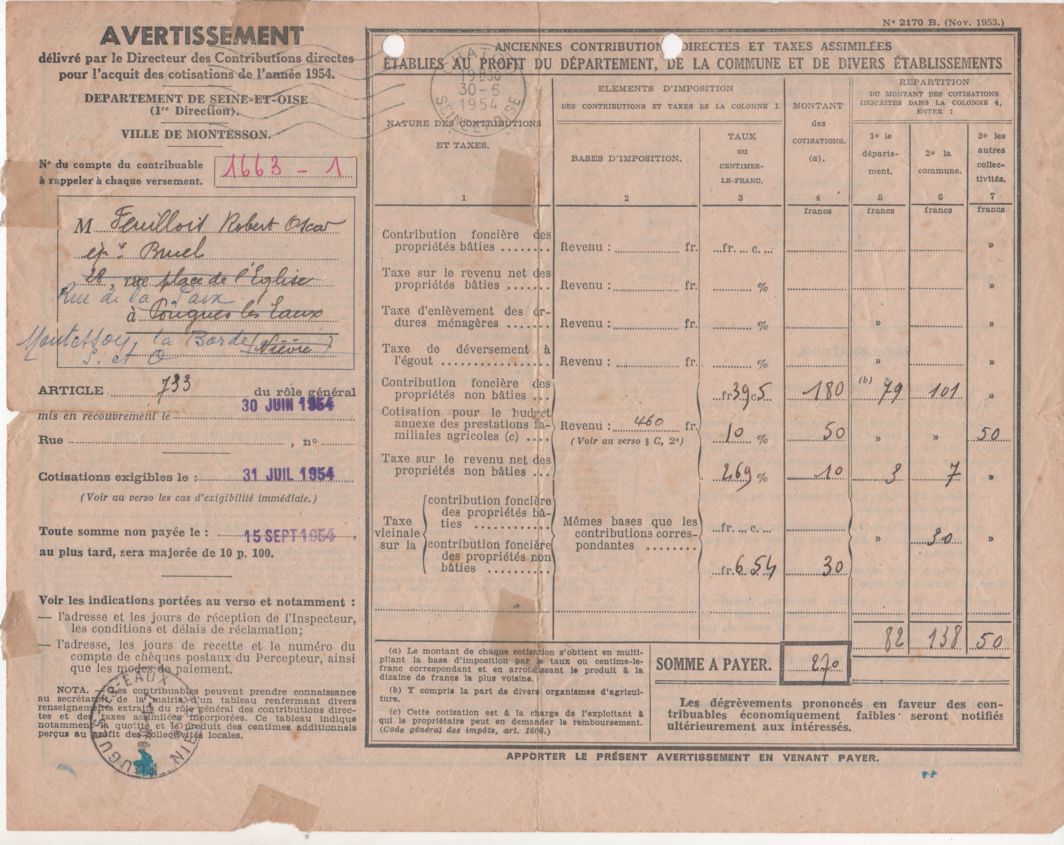 N° 2170 B. (Nov. 1953.)
AVERTISSEMENT
délivré par le Directeur des Contributions directes
pour l'acquit des cotisations de l'année 1954.
DEPARTEMENT DE SEINE-ET-OISE
(1re Direction).
VILLE DE MONTESSON.
N° du compte du contribuable
à rappeler à chaque versement.
1663 - 1
M Feuilloit Robert Oscar
ép. Bruel
28, rue place de l'Eglise
Rue de la Paix
à Pougues les Eaux
Montesson, la Borde (Nièvre)
S. et O
ARTICLE 733 du rôle général
mis en recouvrement le 30 JUIN 1954
Rue , n°
Cotisations exigibles le : 31 JUIL 1954
(Voir au verso les cas d'exigibilité immédiate.)
Toute somme non payée le : 15 SEPT 1954,
au plus tard, sera majorée de 10 p. 100.
Voir les indications portées au verso et notamment :
— l'adresse et les jours de réception de l'Inspecteur,
les conditions et délais de réclamation;
— l'adresse, les jours de recette et le numéro du
compte de chèques postaux du Percepteur, ainsi
que les modes de paiement.
NOTA. — Les contribuables peuvent prendre connaissance
au secrétariat de la mairie d'un tableau renfermant divers
renseignements extraits du rôle général des contributions direc-
tes et des taxes assimilées incorporées. Ce tableau indique
notamment la quotité et le produit des centimes additionnels
perçus au profit des collectivités locales.
ANCIENNES CONTRIBUTIONS DIRECTES ET TAXES ASSIMILÉES
ÉTABLIES AU PROFIT DU DÉPARTEMENT, DE LA COMMUNE ET DE DIVERS ÉTABLISSEMENTS
30-6
1954
NATURE DES CONTRIBUTIONS
ET TAXES.
ELEMENTS D'IMPOSITION
DES CONTRIBUTIONS ET TAXES DE LA COLONNE 1.
BASES D'IMPOSITION.
TAUX
OU
CENTIMES-
LE-FRANC.
MONTANT
des
COTISATIONS.
(a).
REPARTITION
DU MONTANT DES COTISATIONS
INSCRITES DANS LA COLONNE 4,
ENTRE :
1° le
départe-
ment.
2° la
commune.
3° les
autres
collec-
tivités.
1 2 3 4 5 6 7
francs francs francs francs
Contribution foncière des
propriétés bâties ........ Revenu : fr. ...fr. ... c. ... »
Taxe sur le revenu net des
propriétés bâties ........ Revenu : fr. % »
Taxe d'enlèvement des or-
dures ménagères ....... Revenu : fr. % » »
Taxe de déversement à
l'égout ................. Revenu : fr. % » »
Contribution foncière des
propriétés non bâties ... fr 39 c 5 180 (b) 79 101 »
Cotisation pour le budget
annexe des prestations fa-
miliales agricoles (c) .... Revenu : 460 fr. 10 % 50 » » 50
(Voir au verso § C, 2°)
Taxe sur le revenu net des
propriétés non bâties ... 2.69 % 10 3 7 »
Taxe
vicinale
sur la
contribution foncière
des propriétés bâ-
ties ............
contribution foncière
des propriétés non
bâties ..........
Mêmes bases que les
contributions corres-
pondantes ........
...fr. ... c. ...
» 30 »
fr. 6 54 30
82 138 50
(a) Le montant de chaque cotisation s'obtient en multi-
pliant la base d'imposition par le taux ou centime-le-
franc correspondant et en arrondissant le produit à la
dizaine de francs la plus voisine.
(b) Y compris la part de divers organismes d'agricul-
ture.
(c) Cette cotisation est à la charge de l'exploitant à
qui le propriétaire peut en demander le remboursement.
(Code général des impôts, art. 1606.)
SOMME A PAYER. 270
Les dégrèvements prononcés en faveur des con-
tribuables économiquement faibles seront notifiés
ultérieurement aux intéressés.
APPORTER LE PRÉSENT AVERTISSEMENT EN VENANT PAYER.